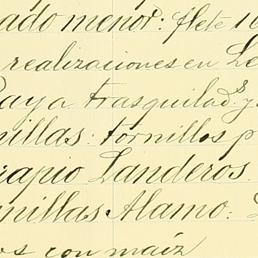 ado menor: flete 10
realizaciones en Le
Paya trasquilad. y
nillas: tornillos p
apio Landeros.
nillas Alamo:
os con maíz